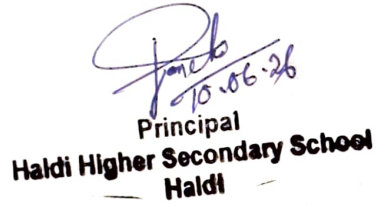 10.06.26
Principal
Haldi Higher Secondary School
Haldi